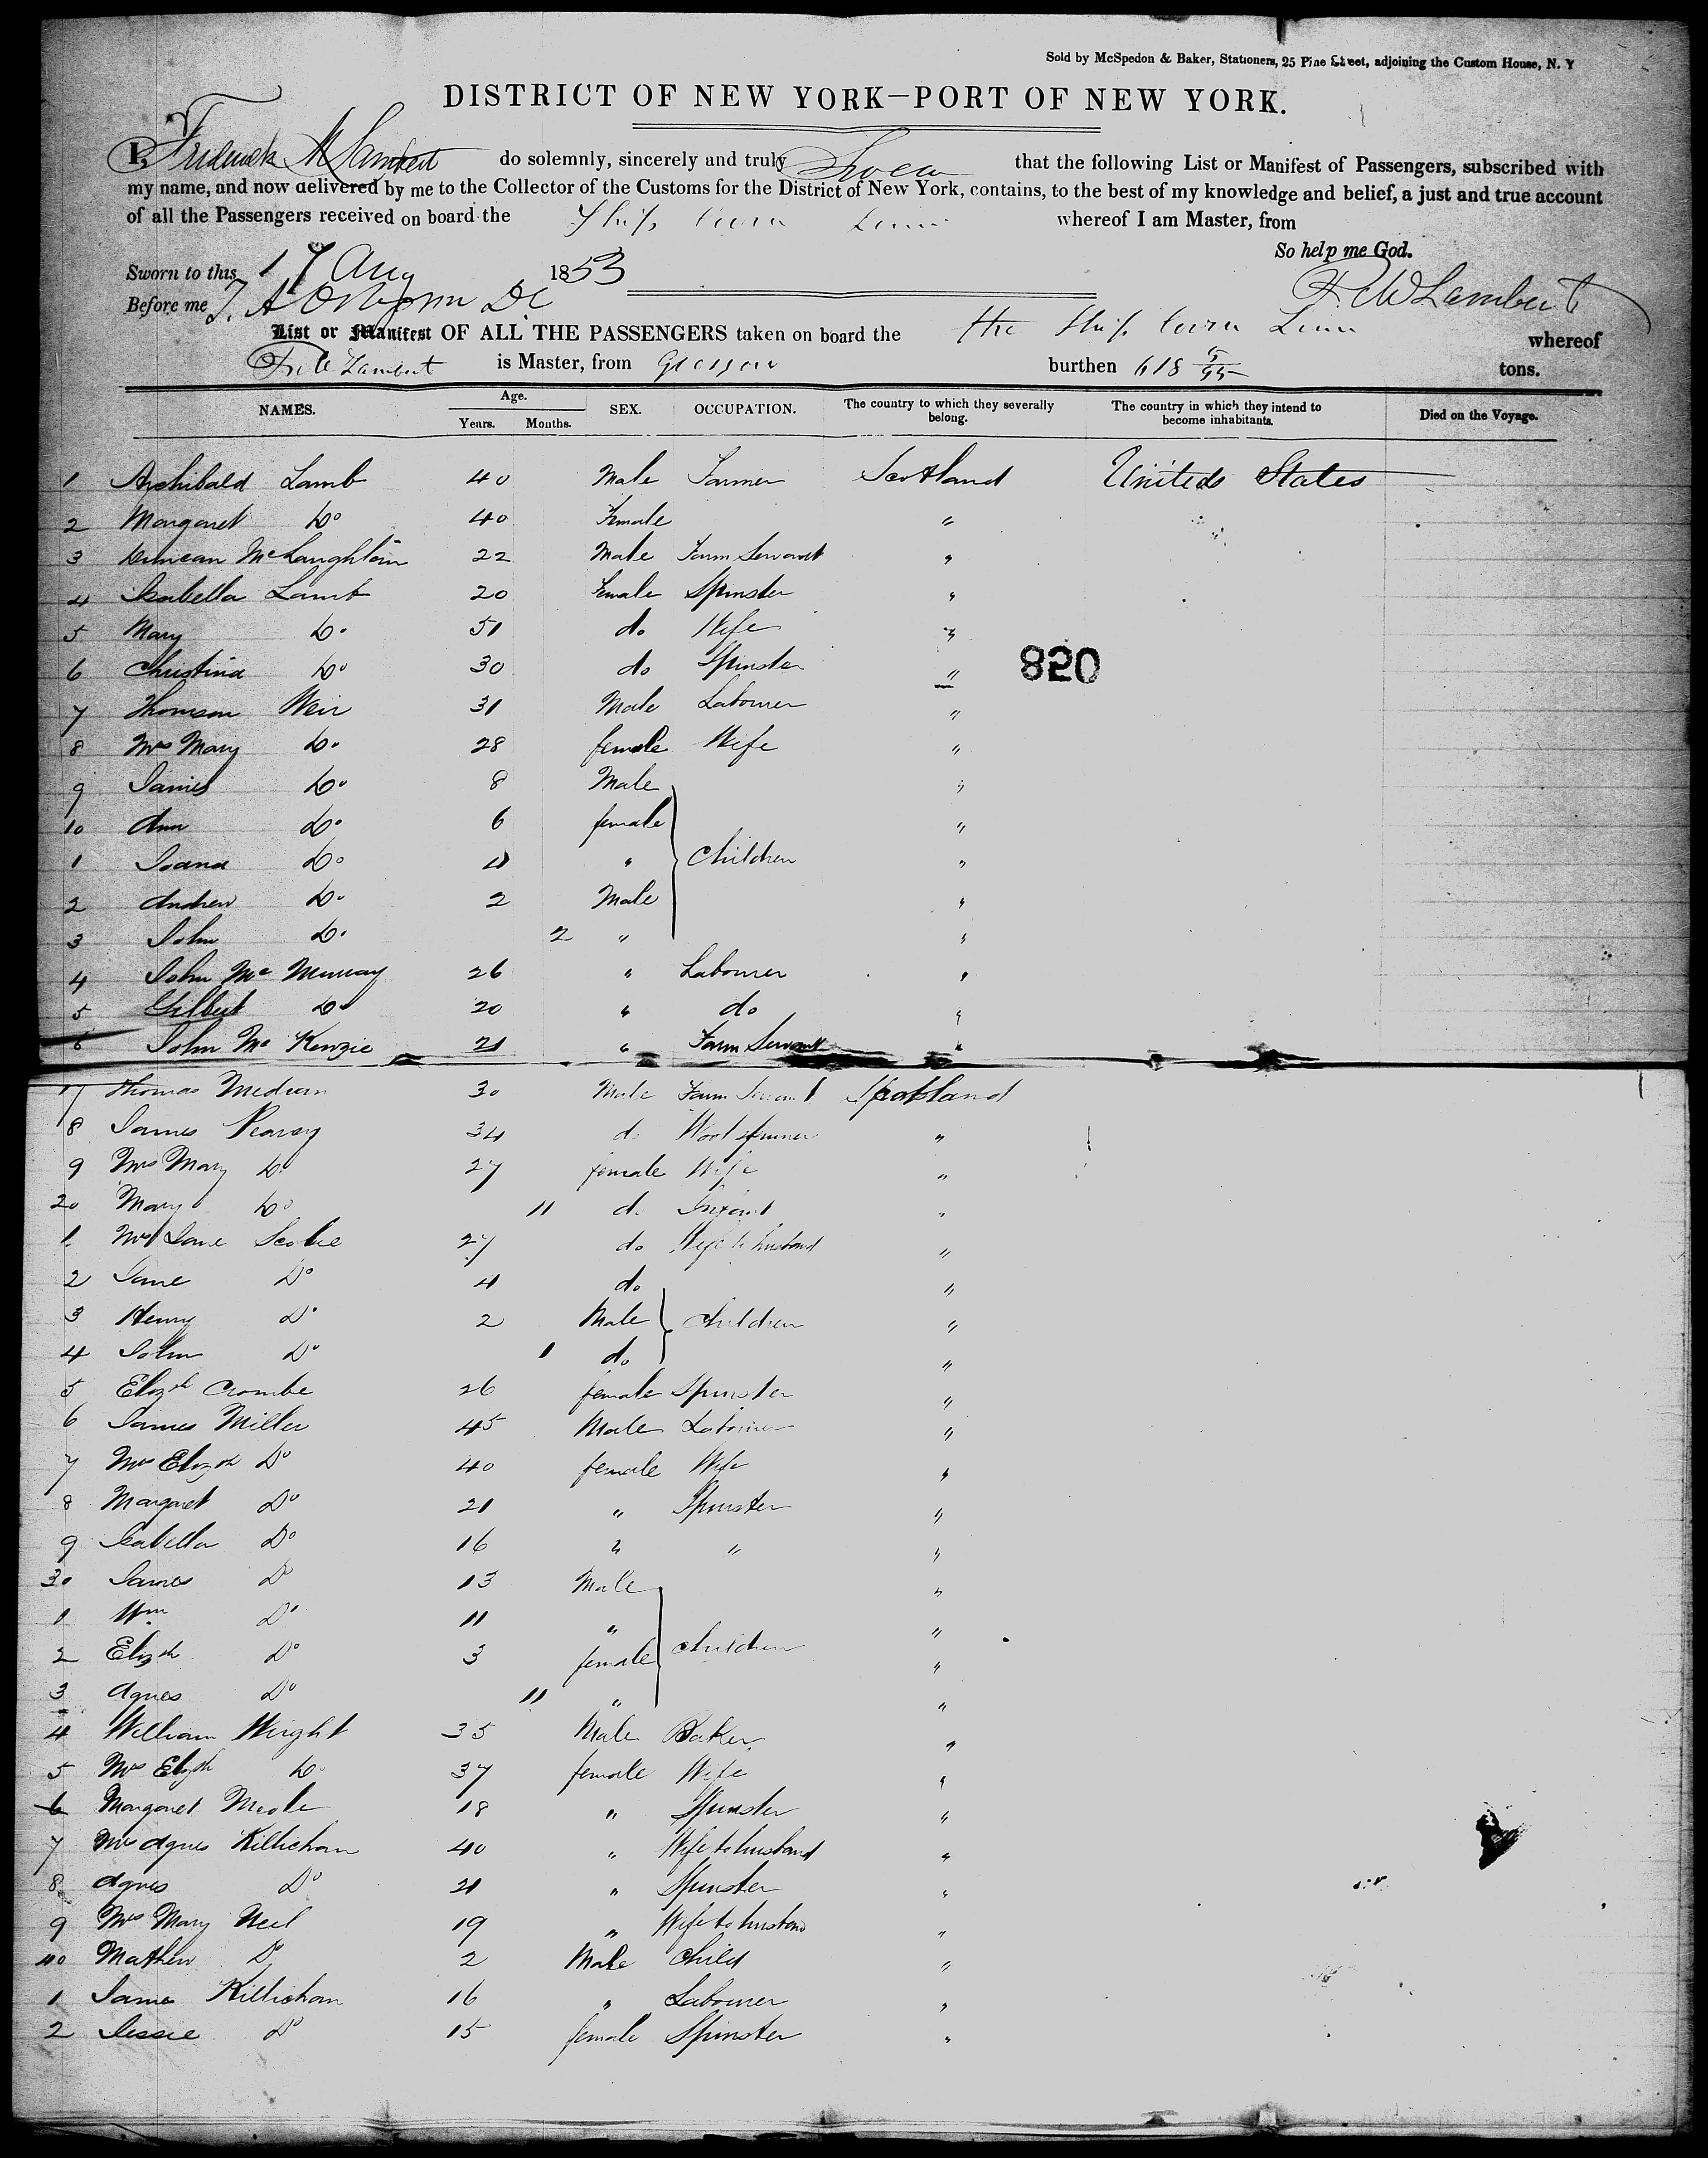 Sold by McSpedon & Baker, Stationers, 25 Pine Street, adjoining the Custom House, N. Y
DISTRICT OF NEW YORK—PORT OF NEW YORK.
I, Frederick W Lambert do solemnly, sincerely and truly Swear that the following List or Manifest of Passengers, subscribed with
my name, and now delivered by me to the Collector of the Customs for the District of New York, contains, to the best of my knowledge and belief, a just and true account
of all the Passengers received on board the Ship whereof I am Master, from
So help me God.
Sworn to this 17 Aug 1853
Before me F W Lambert
List or Manifest OF ALL THE PASSENGERS taken on board the the Ship whereof
F W Lambert is Master, from Glasgow burthen 618 5/95 tons.
NAMES. Age. Years. Months. SEX. OCCUPATION. The country to which they severally belong. The country in which they intend to become inhabitants. Died on the Voyage.
1 Archibald Lamb 40 Male Farmer Scotland United States
2 Margaret Do 40 Female "
3 Duncan McLaughlan 22 Male Farm Servant "
4 Isabella Lamb 20 Female Spinster "
5 Mary Do 51 do Wife "
6 Christina Do 30 do Spinster " 820
7 Thomson Weir 31 Male Labourer "
8 Mrs Mary Do 28 female Wife "
9 James Do 8 Male "
10 Ann Do 6 female "
1 Joana Do 4 " Children "
2 Andrew Do 2 Male "
3 John Do 2 " "
4 John Mc Murray 26 " Labourer "
5 Gilbert Do 20 " do "
6 John Mc Kenzie 21 " Farm Servant "
17 Thomas 30 Male Farm Servant Scotland
8 James 34 do Wool spinner "
9 Mrs Mary Do 27 female Wife "
20 Mary Do 11 do Infant "
1 Mrs Jane Scobie 27 do Wife to husband "
2 Jane Do 4 do "
3 Henry Do 2 Male Children "
4 John Do 1 do "
5 Elizth Crombe 26 female Spinster "
6 James Miller 45 Male Labourer "
7 Mrs Elizth Do 40 female Wife "
8 Margaret Do 21 " Spinster "
9 Isabella Do 16 " " "
30 James Do 13 Male "
1 Wm Do 11 " "
2 Elizth Do 3 female Children "
3 Agnes Do 11 " "
4 William Wright 35 Male Baker "
5 Mrs Elizth Do 37 female Wife "
6 Margaret 18 " Spinster "
7 Mrs Agnes Killichan 40 " Wife to husband "
8 Agnes Do 21 " Spinster "
9 Mrs Mary Neil 19 " Wife to husband "
40 Mathew Do 2 Male Child "
1 James Killichan 16 " Labourer "
2 Jessie Do 15 female Spinster "